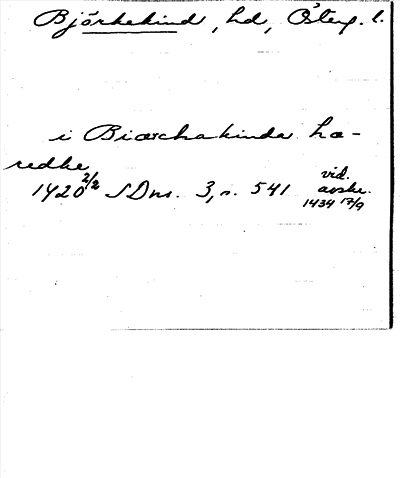 Björkekind, hd, Österg. l.
i Biærchakinda hæ-
redhe
1420 2/2 SDns. 3, s. 541 vid. avskr. 1434 17/9